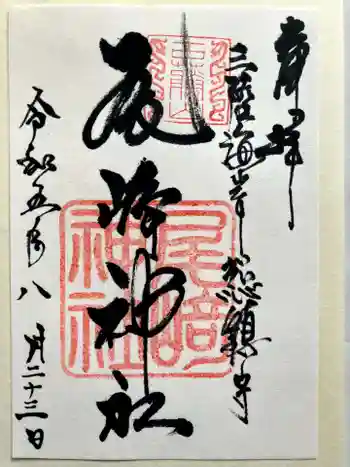 奉拝
三陸海岸総鎮守
尾崎神社
令和五年八月二十三日
尾崎
神社